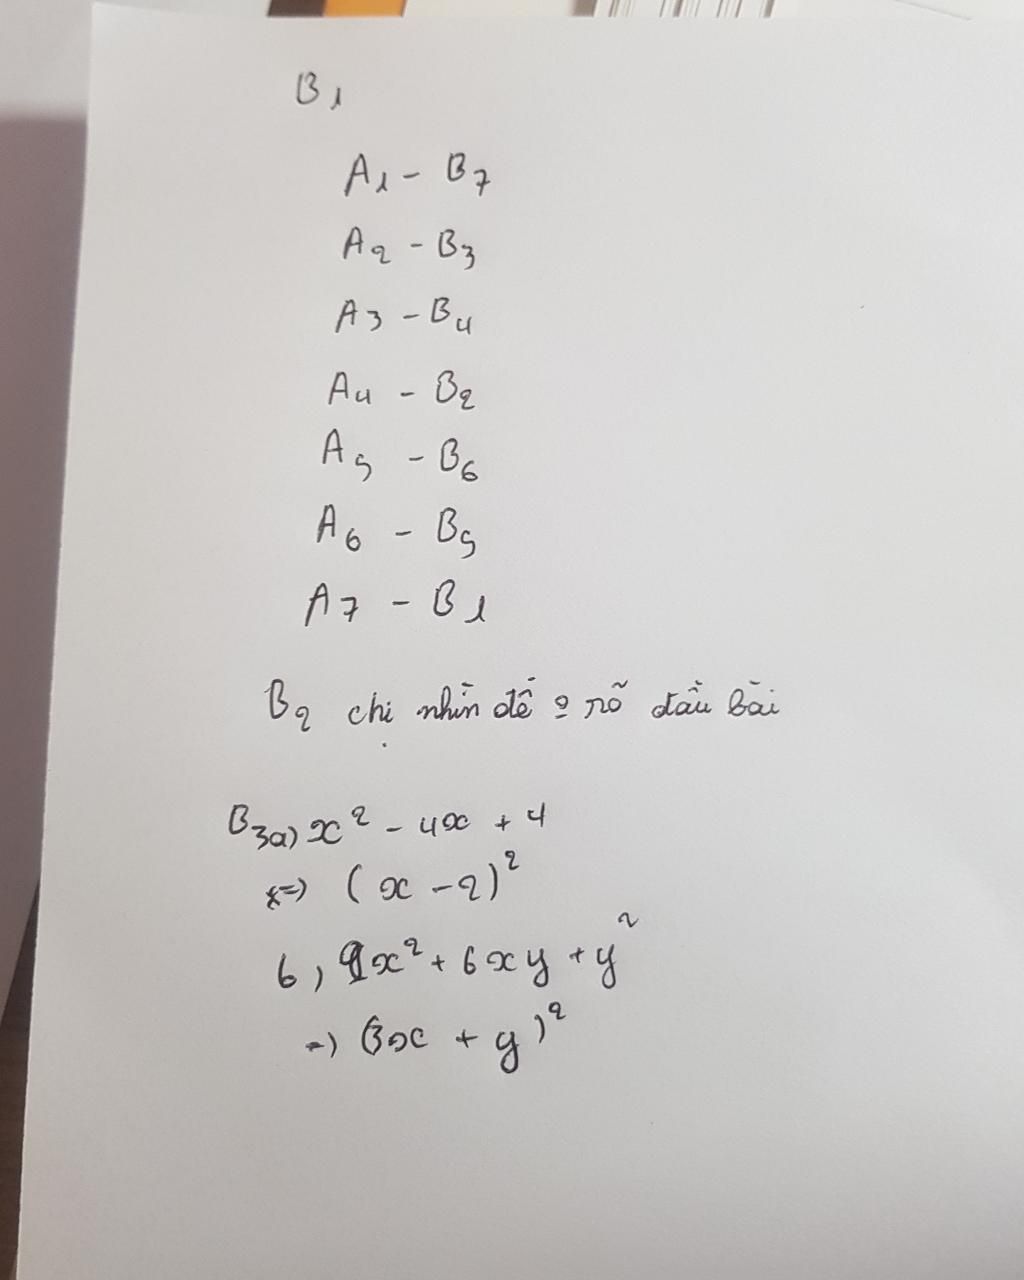 B1
A1 - B7
A2 - B3
A3 - B4
A4 - B2
A5 - B6
A6 - B5
A7 - B1
B2 chị nhìn đề o rõ đầu bài
B3a) x² - 4x + 4
=> (x - 2)²
b, 9x² + 6xy + y²
=> (3x + y)²